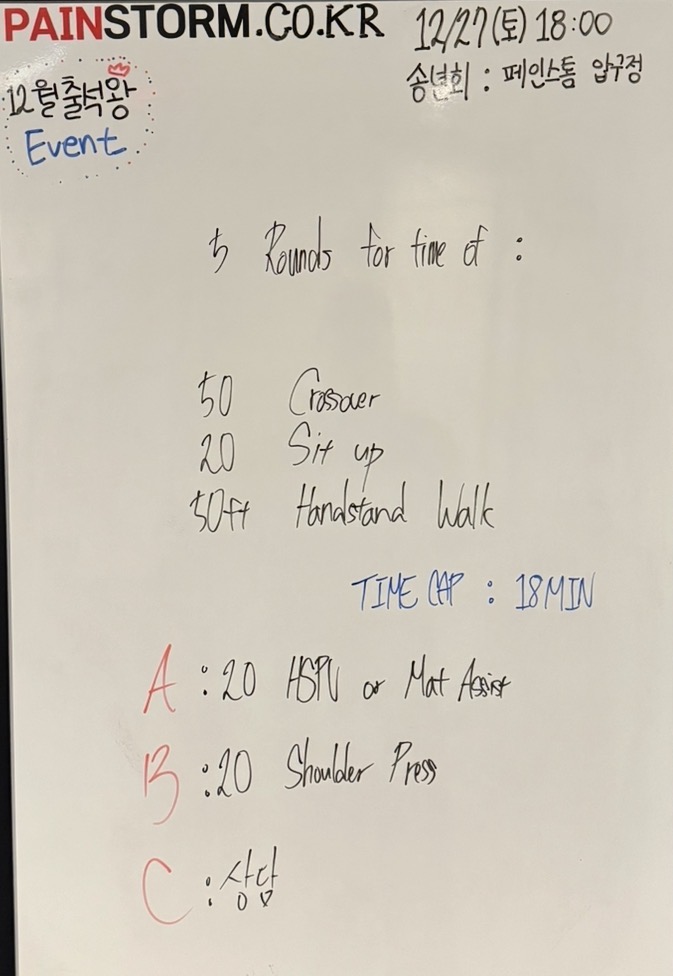 PAINSTORM.CO.KR
12/27(토) 18:00
송년회 : 페인스톰 압구정
12월 출석왕
Event
5 Rounds for time of :
50 Crossover
20 Sit up
50ft Handstand Walk
TIME CAP : 18MIN
A : 20 HSPU or Mat Assist
B : 20 Shoulder Press
C : 상담